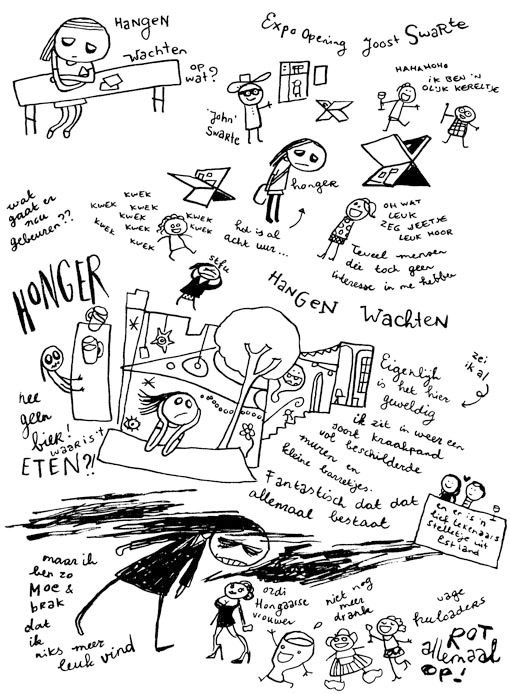 HANGEN
Wachten
op
wat?
Expo Opening Joost Swarte
HAHAHOHO
ik BEN 'N
OLIJK KERELTJE
'John'
SWARTE
honger
wat
gaat er
nou
gebeuren??
KWEK KWEK
KWEK KWEK
KWEK KWEK
KWEK KWEK
KWEK KWEK
KWEK
het is al
acht uur...
OH WAT
LEUK
ZEG JEETJE
LEUK HOOR
Teveel mensen
die toch geen
interesse in me hebben
stfu
HONGER
HANGEN Wachten
zei
ik al
Eigenlijk
is het hier
geweldig
ik zit in weer een
soort kraakpand
vol beschilderde
muren en
kleine barretjes.
Fantastisch dat dat
allemaal bestaat
nee
geen
bier!
waar is 't
ETEN?!
en er is 'n
lief lekenaars
stelletje uit
Estland
maar ik
ben zo
MOE &
brak
dat
ik
niks meer
leuk vind
ordi
Hongaarse
vrouwen
niet nog
meer
drank
vage
freeloaders
ROT
allemaal
OP!